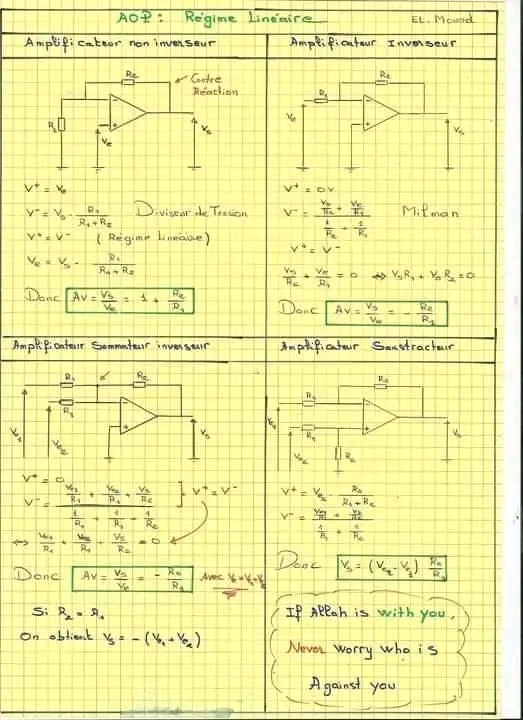 AOP : Régime Linéaire
EL. Mouad
Amplificateur non inverseur
R2
Contre
Réaction
R1
Ve
Vs
V+ = Ve
V- = Vs . R1 / R1+R2 Diviseur de Tension
V+ = V- (Régime Linéaire)
Ve = Vs . R1 / R1+R2
Donc Av = Vs/Ve = 1 + R2/R1
Amplificateur Inverseur
R2
R1
Ve
Vs
V+ = 0V
V- = Vs/R2 + Ve/R1 / 1/R2 + 1/R1 Milman
V+ = V-
Vs/R2 + Ve/R1 = 0 ⇔ VsR1 + VsR2 = 0
Donc Av = Vs/Ve = - R2/R1
Amplificateur Sommateur inverseur
R1
R2
R1
Ve1
Ve2
Vs
V+ = 0
V- = Ve1/R1 + Ve2/R1 + Vs/R2 / 1/R1 + 1/R1 + 1/R2 } V+ = V-
⇔ Ve1/R1 + Ve2/R1 + Vs/R2 = 0
Donc Av = Vs/Ve = - R2/R1 Avec
Si R2 = R1
On obtient Vs = - (Ve1 + Ve2)
Amplificateur Soustracteur
R2
R1
R1
R2
Ve1
Ve2
Vs
V+ = Ve2 . R2 / R1+R2
V- = Ve1/R1 + Vs/R2 / 1/R1 + 1/R2
Donc Vs = (Ve2 - Ve1) R2/R1
If Allah is with you,
Never Worry who is
Against you